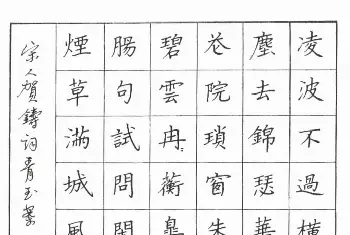 凌波不過橫
塵去錦瑟華
花院瑣窗朱
碧雲冉〻蘅皋
腸句試問閑
煙草滿城風
宋人賀鑄詞青玉案